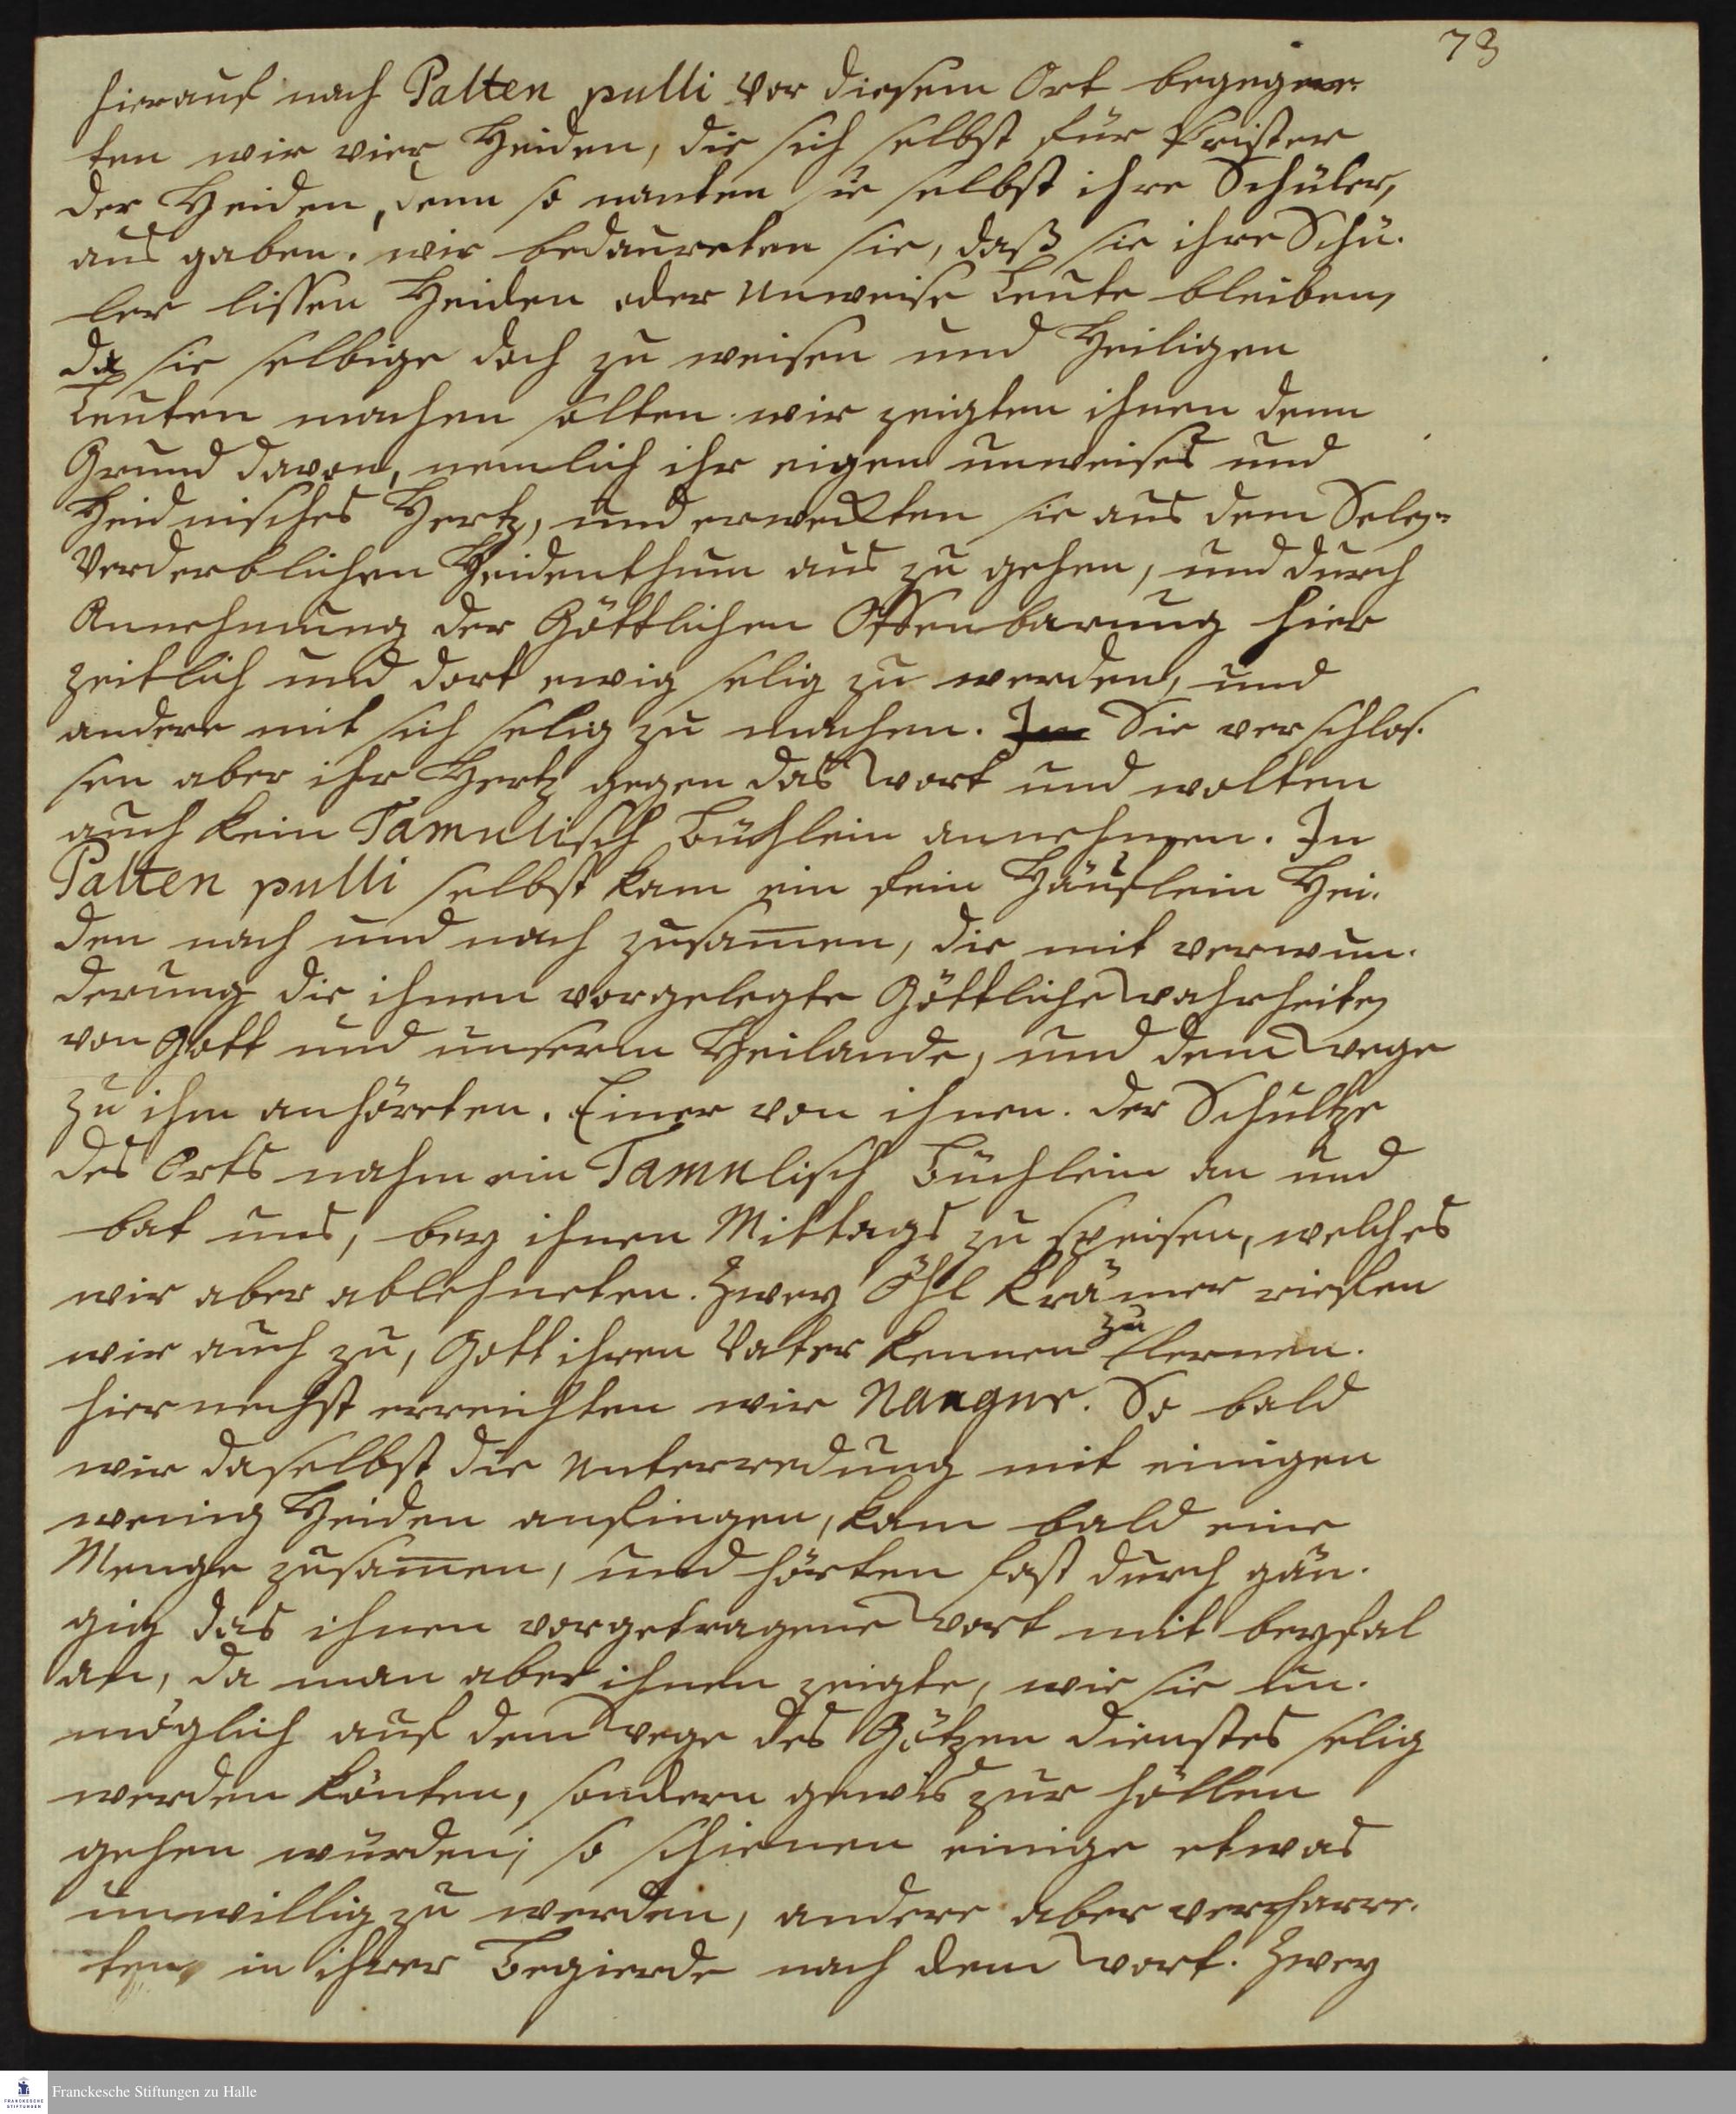 73
hierauf nach Palten pulli. Vor diesem Ort begegne-
ten wir vier Heiden, die sich selbst für Prister
der Heiden, denn so nanten sie selbst ihre Schüler,
aus gaben. wir bedaureten sie, daß sie ihre Schü-
ler lissen Heiden oder Unweise Leute bleiben,
da sie selbige doch zu weisen und Heiligen
Leuten machen solten. wir zeigten ihnen denn
Grund davon, nemlich ihr eigen unweises und
Heidnisches Hertz, und erweckten sie aus dem Selen-
Verderblichen Heidenthum aus zu gehen, und durch
Annehmung der Göttlichen Offenbarung hier
zeitlich und dort ewig selig zu werden, und
andere mit sich selig zu machen. In Sie verschlos-
sen aber ihr Hertz gegen das Wort und wolten
auch kein Tamulisch Büchlein annehmen. In
Palten pulli selbst kam ein fein Häuflein Hei-
den nach und nach zusam̅en, die mit verwun-
derung die ihnen vorgelegte Göttliche Wahrheiten
von Gott und unserm Heilande, und dem Wege
zu ihm anhöreten. Einer von ihnen. der Schultze
des Orts nahm ein Tamulisch Büchlein an und
bat uns, bey ihnen Mittags zu speisen, welches
wir aber ablehneten. Zwey Öhl Krämer riefen
wir auch zu, Gott ihren Vater kennen zu lernen.
hiernechst erreichten wir Nangur. So bald
wir daselbst die Unterredung mit einigen
wenig Heiden anfingen, kam bald eine
Menge zusam̅en, und hörten fast durch gän-
gig das ihnen vorgetragene Wort mit beyfal
an, da man aber ihnen zeigte, wie sie un-
möglich auf dem Wege des Götzen dienstes selig
werden könten, sondern gewis zur höllen
gehen würden; so schienen einige etwas
unwillig zu werden, andere aber verharre-
ten in ihrer Begierde nach dem Wort. Zwey
Franckesche Stiftungen zu Halle
FRANCKESCHE
STIFTUNGEN